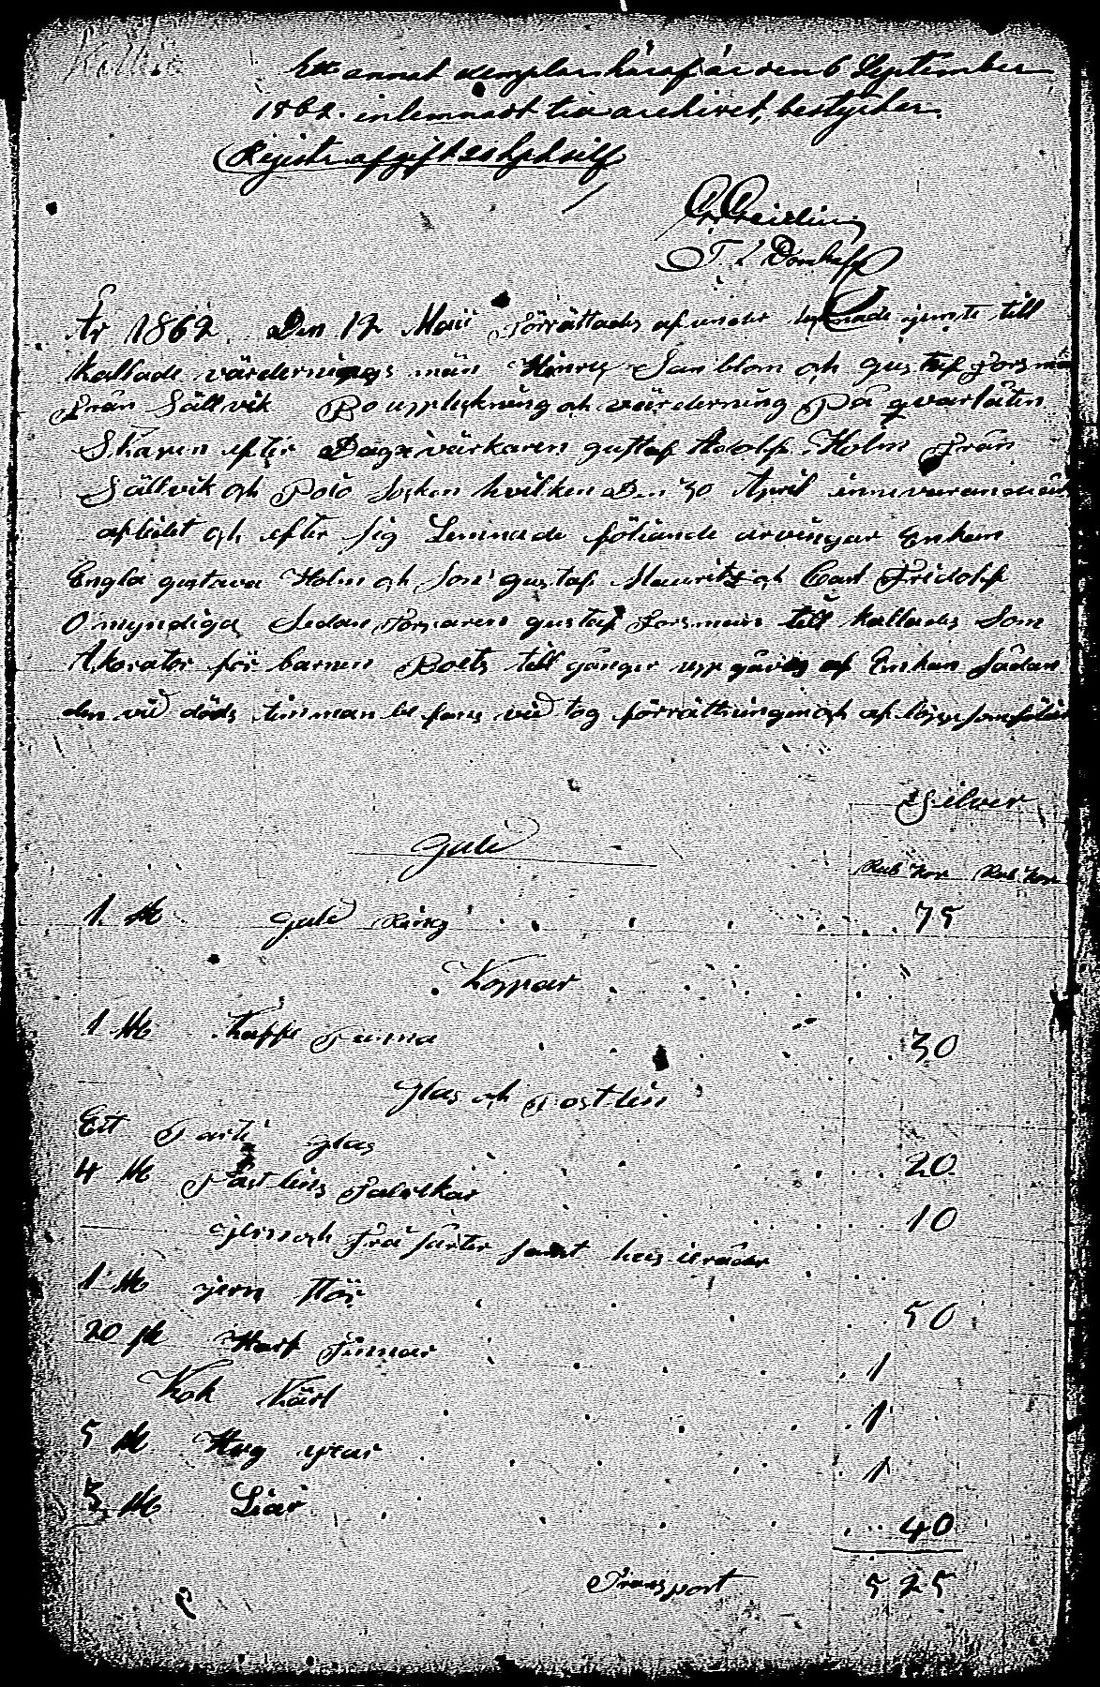 Ett annat exemplar häraf är den 6 September
1862 inlemnadt till archivet, betyder.
(Registr. afgift 20 kop silf
År 1862 Den 12 Maii förrättades af under tecknade jemte till
kallade värderings män Henric Sanblom och gustaf Forsman
från Sällvik Bouppteckning och värdering På qvarlåten
Skapen efter Dagsvärkaren gustaf Adolf Holm från
Sällvik och Pojo Socken hvilken Den 30 April innevarande år
aflidet och efter sig Lemnade föliande arvingar Enkan
Engla gustava Holm och Son gustaf Mauritz och Carl Fridolf
Omyndiga Sedan Torparen gustaf Forsman till kallades Som
Akorator för barnen Boets till gånger upp gåves af Enkan Sådan
den vid döds timman be fans vid tog förrättningen och af löpp som föliar
Silver
Guld
Rub Kop Rub Kop
1 st Guld Ring 75
Koppar
1 st Kaffe Panna 30
Glas och Postlin
Ett Parti glas 20
4 st Postlins Talrikar 10
jern och Trä sarter samt hus geråder
1 st jern Stör 50
20 st Harf Pinnar 1
Kok Kärl 1
5 st Hug yxar 1
3 st Liar 40
Transport 5 25